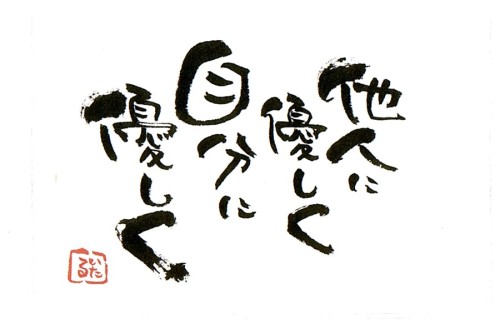 他人に
優しく
自分に
優しく